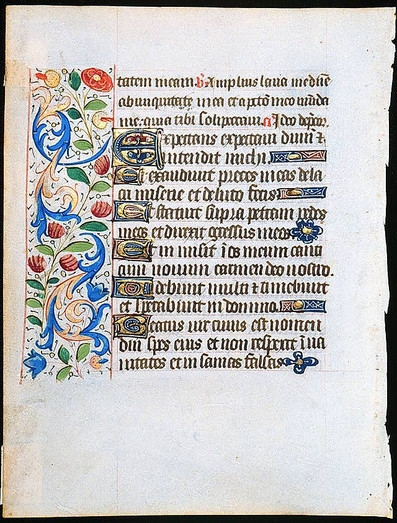 tatem meam. Amplius laua me dnie
ab iniquitate mea et a pcto meo munda
me: quia tibi soli peccaui. a Ideo depcor.
Expectans expectaui dnm &
intendit michi.
Et exaudiuit preces meas de la
miserie et de luto fecis
Et statuit supra petram pedes
meos et direxit gressus meos
Et in misit i os meum canti
nouum carmen deo nostro.
Videbunt multi & timebunt
et sperabunt in domino.
Beatus uir cuius est nomen
dni spes eius et non respexit i ua
nitates et insanias falsas